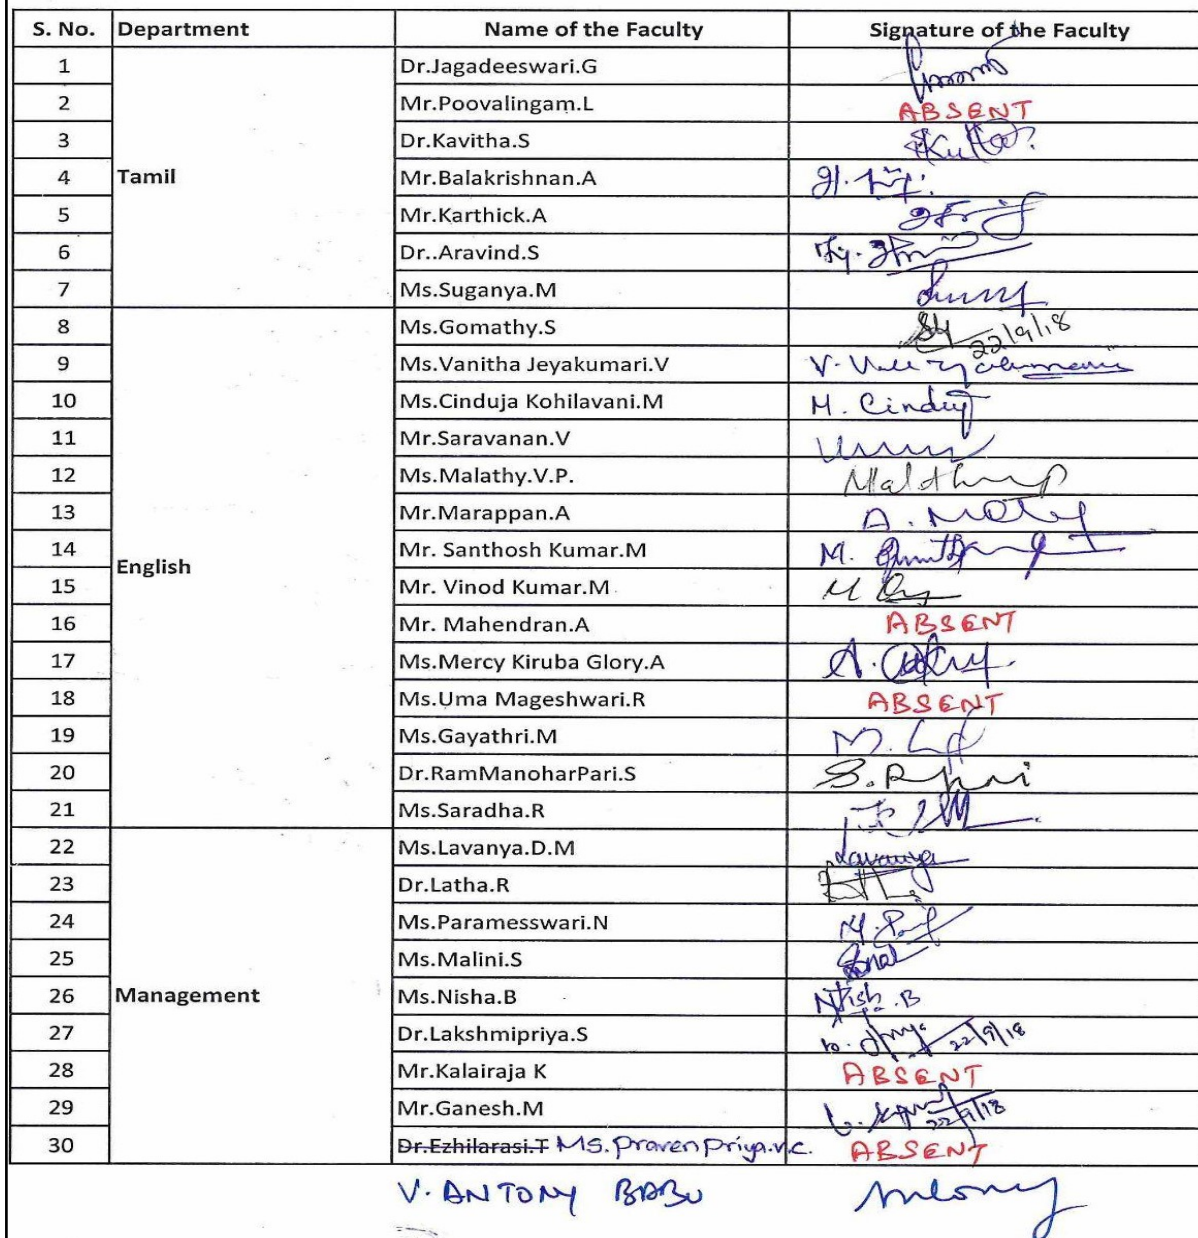 S. No. Department Name of the Faculty Signature of the Faculty
1 Dr.Jagadeeswari.G
2 Mr.Poovalingam.L ABSENT
3 Dr.Kavitha.S
4 Tamil Mr.Balakrishnan.A
5 Mr.Karthick.A
6 Dr..Aravind.S
7 Ms.Suganya.M
8 Ms.Gomathy.S 22/9/18
9 Ms.Vanitha Jeyakumari.V
10 Ms.Cinduja Kohilavani.M M. Cinduj
11 Mr.Saravanan.V
12 Ms.Malathy.V.P.
13 Mr.Marappan.A
14 Mr. Santhosh Kumar.M
English
15 Mr. Vinod Kumar.M
16 Mr. Mahendran.A ABSENT
17 Ms.Mercy Kiruba Glory.A
18 Ms.Uma Mageshwari.R ABSENT
19 Ms.Gayathri.M
20 Dr.RamManoharPari.S
21 Ms.Saradha.R
22 Ms.Lavanya.D.M Lavanya
23 Dr.Latha.R
24 Ms.Paramesswari.N
25 Ms.Malini.S
26 Management Ms.Nisha.B Nish .B
27 Dr.Lakshmipriya.S 22/9/18
28 Mr.Kalairaja K ABSENT
29 Mr.Ganesh.M 22/9/18
30 Dr.Ezhilarasi.T Ms.Praven priya.v.c. ABSENT
V. ANTONY BABU